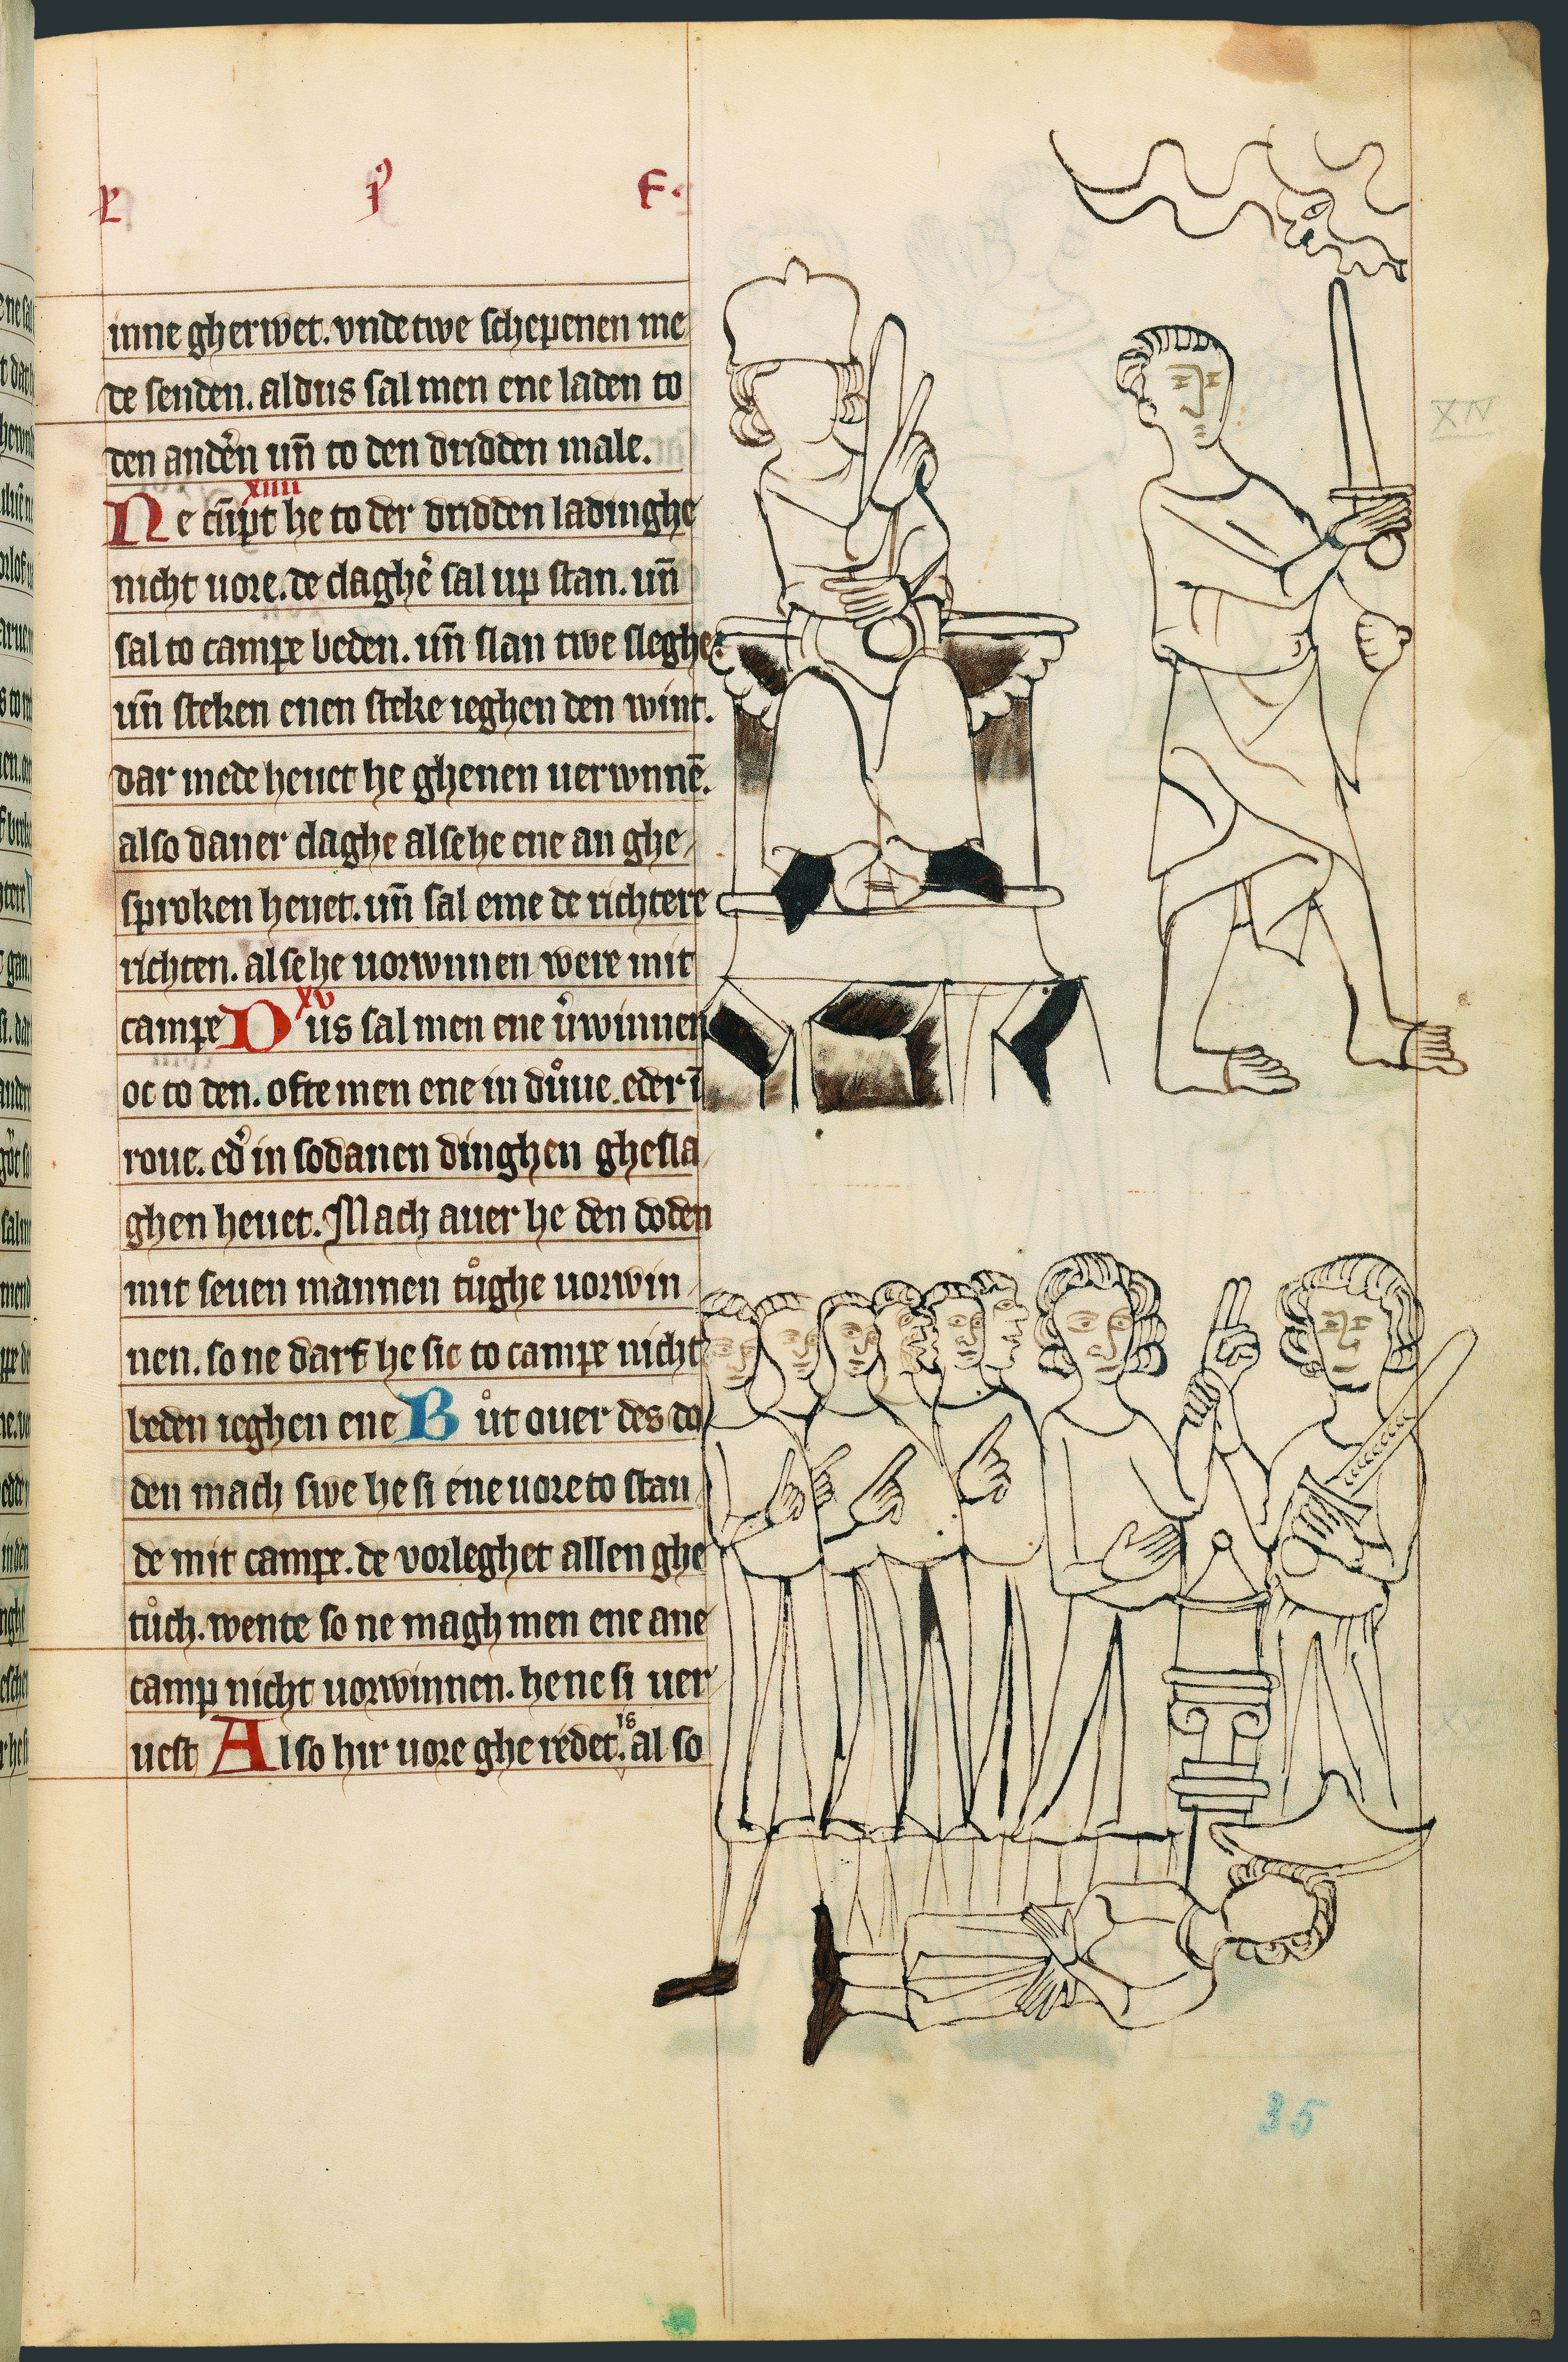 inne gherwet. vnde twe schepenen me
de senden. aldus sal men ene laden to
den andẽn un̄ to den dridden male.
xiiii
Ne cūpt he to der dridden ladinghe
nicht uore. de claghẽ sal up stan. un̄
sal to campe beden. un̄ slan twe sleghe.
un̄ steken enen steke ieghen den wint.
dar mede heuet he ghenen uerwnnē.
also daner claghe alse he ene an ghe
sproken heuet. un̄ sal eme de richtere
richten. alse he uorwnnen were mit
xv
campe Dus sal men ene v̉winnen
oc to den. ofte men ene in důue. eder ī
roue. ed̉ in sodanen dinghen ghesla
ghen heuet. Mach auer he den doden
mit seuen mannen tůghe uorwin
nen. so ne darf he sic to campe nicht
beden ieghen ene Bůt ouer des do
den mach swe he si ene uore to stan
de mit campe. de vorleghet allen ghe
tůch. wente so ne magh men ene ane
camp nicht uorwinnen. he ne si uer
uest Also hir uore gheredet is. al so
XIV
XV
35